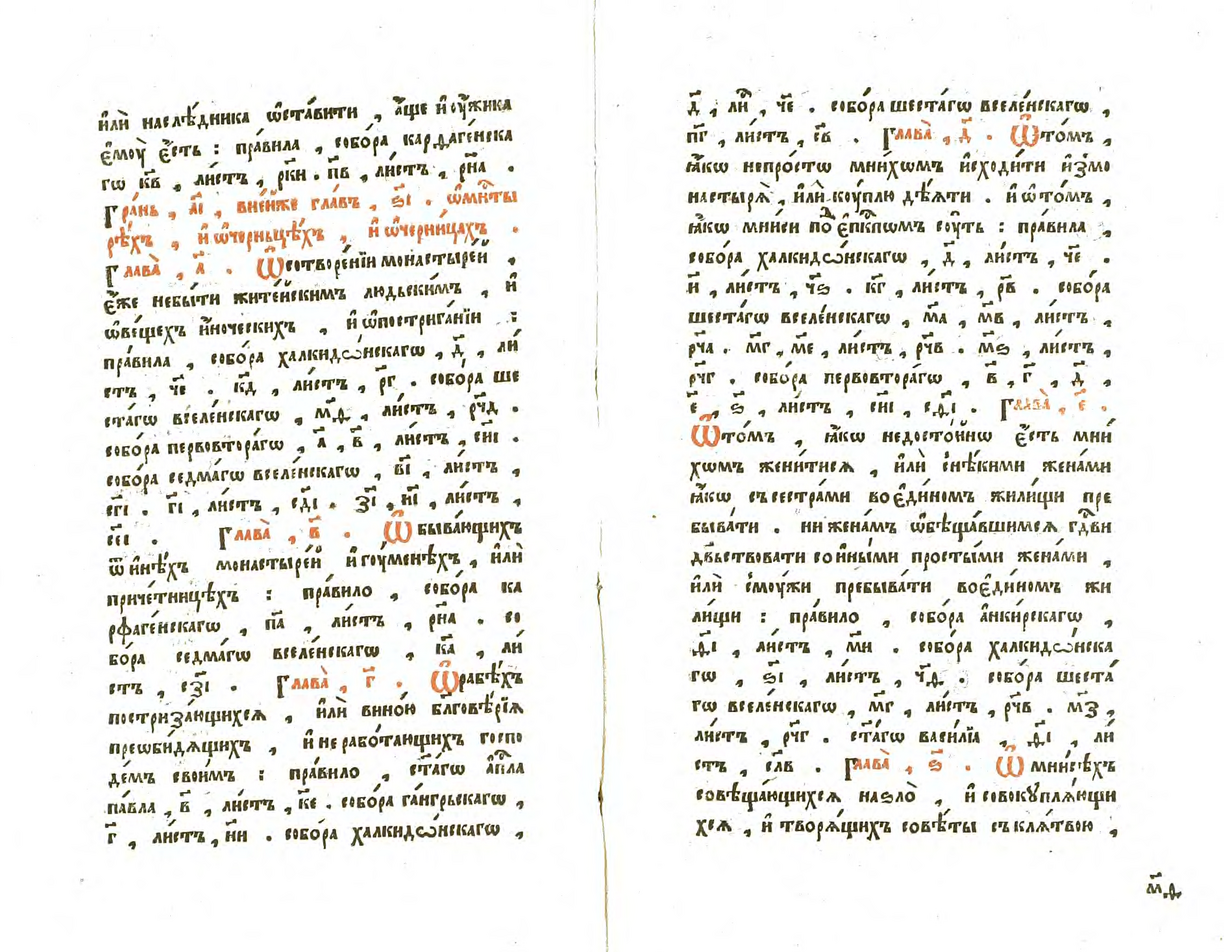 и҆лѝ наслѣ́дника ѡ҆ста́вити , а҆́ще и҆ ѹ҆́жика
є҆мꙋ̀ є҆́сть : пра́вила , собо́ра карѳаге́нска
гѡ к҃в , ли́стъ , рк҃и . п҃в , ли́стъ , рн҃а .
Гра́нь , а҃і , вне́йже гла́въ , ѕ҃і . ѡ҆ мн҃сты
рѣ́хъ , и҆ ѡ҆ черньцѣ́хъ , и҆ ѡ҆ черни́цахъ .
Глава̀ , а҃ . Ѿ сотворе́нїи монастыре́й ,
є҆́же небы́ти жите́йскимъ людьскимъ , и҆
ѡ҆ ве́щехъ и҆́ноческихъ , и҆ ѡ҆ пострига́нїи :
пра́вила , собо́ра халкидо́нскагѡ , д҃ , ли́
стъ , ч҃е . к҃д , ли́стъ , р҃г . собо́ра ше
ста́гѡ вселе́нскагѡ , м҃д , ли́стъ , рч҃д .
собо́ра первовтора́гѡ , а҃ , в҃ , ли́стъ , сн҃і .
собо́ра седма́гѡ вселе́нскагѡ , в҃і , ли́стъ ,
сг҃і . г҃і , ли́стъ , сд҃і . з҃і , и҃і , ли́стъ ,
се҃і . Глава̀ , в҃ . Ѿ быва́ющихъ
ѿ и҆нѣ́хъ монастыре́й и҆гꙋ́менѣхъ , и҆лѝ
приче́тницѣхъ : пра́вило , собо́ра ка
рѳаге́нскагѡ , п҃а , ли́стъ , рн҃а . со
бо́ра седма́гѡ вселе́нскагѡ , к҃а , ли́
стъ , сз҃і . Глава̀ , г҃ . Ѿ рабѣ́хъ
постриза́ющихсѧ , и҆лѝ вино́ю бл҃говѣ́рїѧ
преѡби́дѧщихъ , и҆ не рабо́тающихъ госпо
де́мъ свои́мъ : пра́вило , ст҃а́гѡ а҆п҃ла
па́вла , в҃ , ли́стъ , к҃е . собо́ра га́нгрьскагѡ ,
г҃ , ли́стъ , н҃и . собо́ра халкидо́нскагѡ ,
д҃ , ли́ , ч҃е . собо́ра шеста́гѡ вселе́нскагѡ ,
п҃г , ли́стъ , с҃в . Глава̀ , д҃ . Ѿ то́мъ ,
ꙗ҆́кѡ непро́стѡ мни́хѡмъ и҆сходи́ти и҆з̾ мо
настырѧ̀ , и҆лѝ кꙋ́плю дѣ́ѧти . и҆ ѡ҆ то́мъ ,
ꙗ҆́кѡ мни́си по̀д є҆п҃кпѡмъ сꙋ́ть : пра́вила ,
собо́ра халкидо́нскагѡ , д҃ , ли́стъ , ч҃е .
и҃ , ли́стъ , ч҃ѕ . к҃г , ли́стъ , р҃в . собо́ра
шеста́гѡ вселе́нскагѡ , м҃а , м҃в , ли́стъ ,
рч҃а . м҃г , м҃е , ли́стъ , рч҃в . м҃ѕ , ли́стъ ,
рч҃г . собо́ра первовтора́гѡ , в҃ , г҃ , д҃ ,
е҃ , ѕ҃ , ли́стъ , сн҃і , сд҃і . Глава̀ , е҃ .
Ѿ то́мъ , ꙗ҆́кѡ недосто́йнѡ є҆́сть мни́
хѡмъ жени́тисѧ , и҆лѝ снѣ́кими жена́ми
ꙗ҆́кѡ съ сестра́ми во є҆ди́номъ жили́щи пре
быва́ти . ни жена́мъ ѡ҆бѣща́вшимсѧ гд҃ви
дѣ́вьствовати со и҆ны́ми просты́ми жена́ми ,
и҆лѝ смꙋ́жи пребыва́ти во є҆ди́номъ жи
ли́щи : пра́вило , собо́ра а҆нки́рскагѡ ,
д҃і , ли́стъ , м҃и . собо́ра халкидо́нска
гѡ , ѕ҃і , ли́стъ , ч҃д . собо́ра шеста́
гѡ вселе́нскагѡ , м҃г , ли́стъ , рч҃в . м҃з ,
ли́стъ , рч҃г . ст҃а́гѡ васи́лїа , д҃і , ли́
стъ , сл҃в . Глава̀ , ѕ҃ . Ѿ мни́сѣхъ
совѣща́ющихсѧ на ѕло̀ , и҆ совокꙋплѧ́ющи
хсѧ , и҆ творѧ́щихъ совѣ́ты съ клѧ́твою ,
м҃д